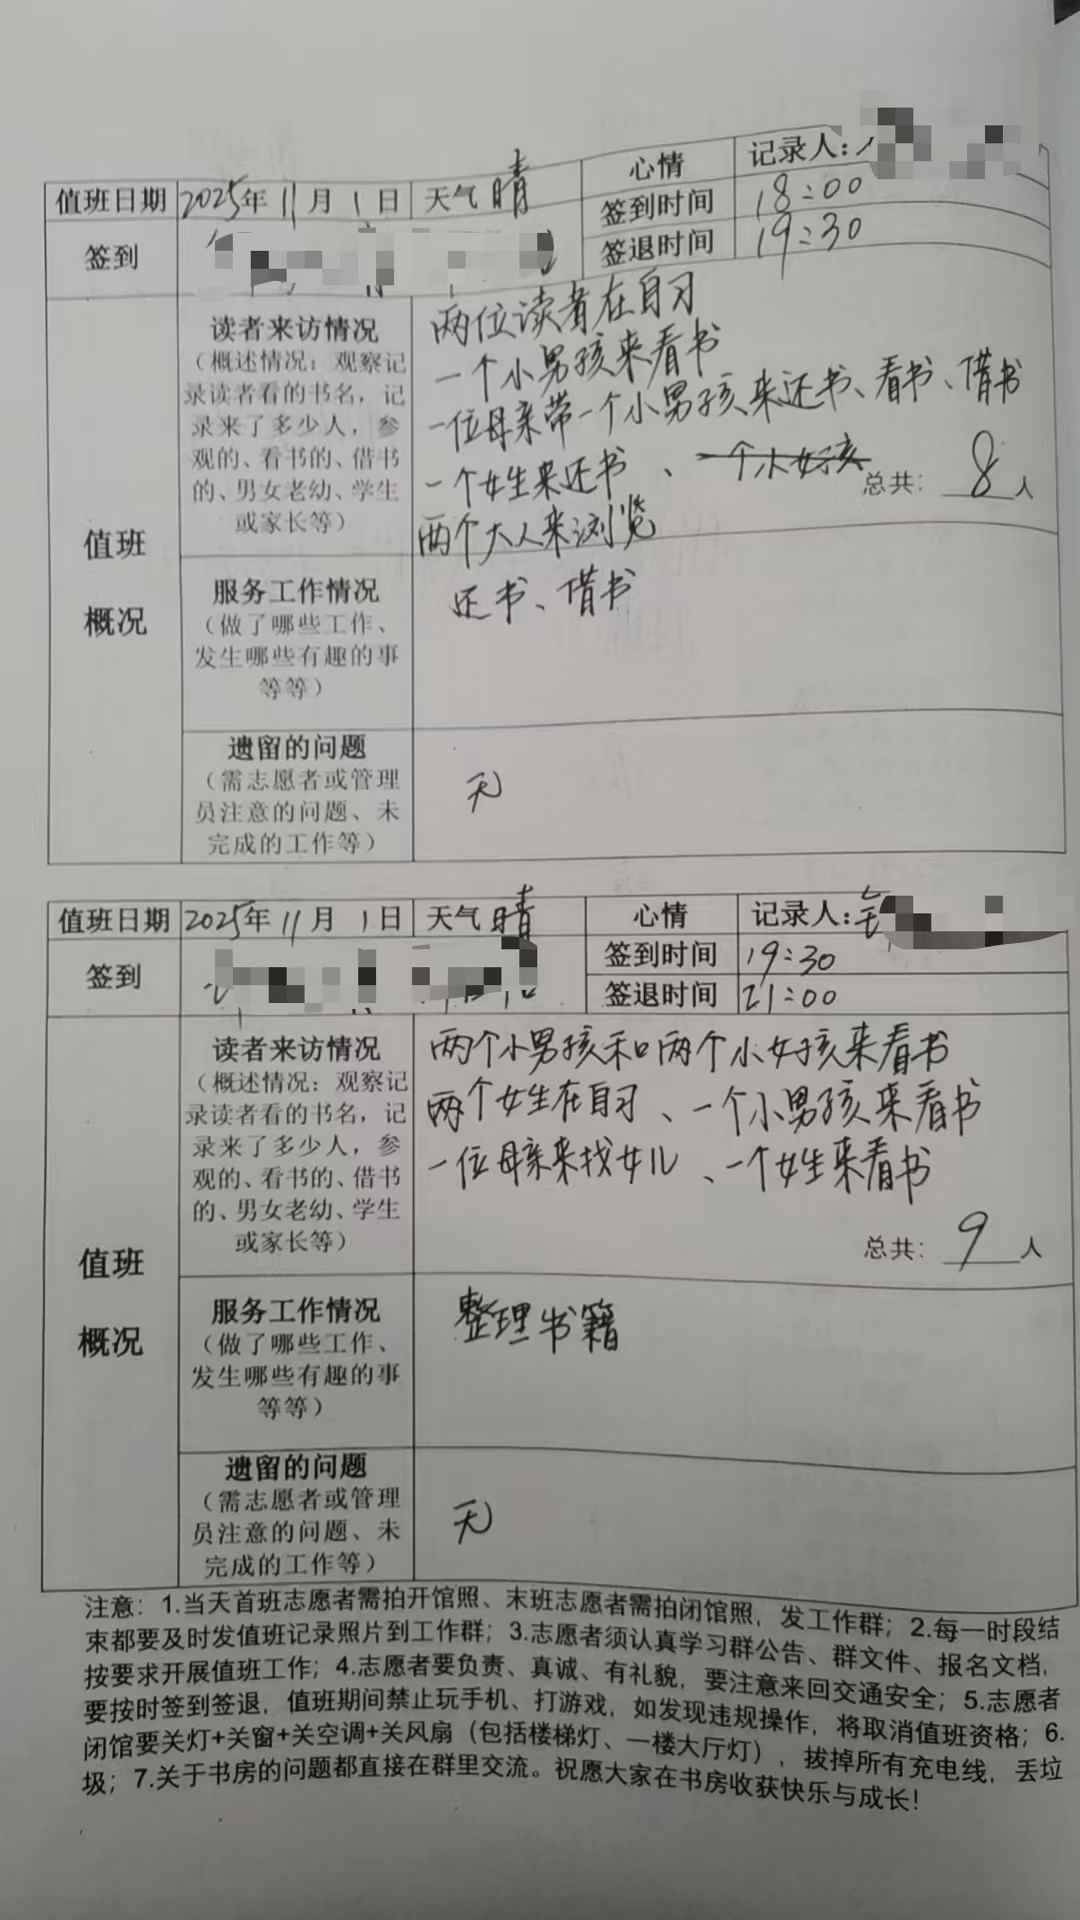 值班日期 2025年 11月 1日 天气 晴 心情 记录人:
签到时间 18:00
签到 签退时间 19:30
值班概况
读者来访情况
(概述情况:观察记
录读者看的书名,记
录来了多少人,参
观的、看书的、借书
的、男女老幼、学生
或家长等)
两位读者在自习
一个小男孩来看书
一位母亲带一个小男孩来还书、看书、借书
一个女生来还书、一个小女孩
总共:8人
两个大人来浏览
服务工作情况
(做了哪些工作、
发生哪些有趣的事
等等)
还书、借书
遗留的问题
(需志愿者或管理
员注意的问题、未
完成的工作等)
无
值班日期 2025年 11月 1日 天气 晴 心情 记录人:
签到时间 19:30
签到 签退时间 21:00
值班概况
读者来访情况
(概述情况:观察记
录读者看的书名,记
录来了多少人,参
观的、看书的、借书
的、男女老幼、学生
或家长等)
两个小男孩和两个小女孩来看书
两个女生在自习、一个小男孩来看书
一位母亲来找女儿、一个女生来看书
总共:9人
服务工作情况
(做了哪些工作、
发生哪些有趣的事
等等)
整理书籍
遗留的问题
(需志愿者或管理
员注意的问题、未
完成的工作等)
无
注意:1.当天首班志愿者需拍开馆照、末班志愿者需拍闭馆照,发工作群;2.每一时段结
束都要及时发值班记录照片到工作群;3.志愿者须认真学习群公告、群文件、报名文档,
按要求开展值班工作;4.志愿者要负责、真诚、有礼貌,要注意来回交通安全;5.志愿者
要按时签到签退,值班期间禁止玩手机、打游戏,如发现违规操作,将取消值班资格;6.
闭馆要关灯+关窗+关空调+关风扇(包括楼梯灯、一楼大厅灯),拔掉所有充电线,丢垃
圾;7.关于书房的问题都直接在群里交流。祝愿大家在书房收获快乐与成长!